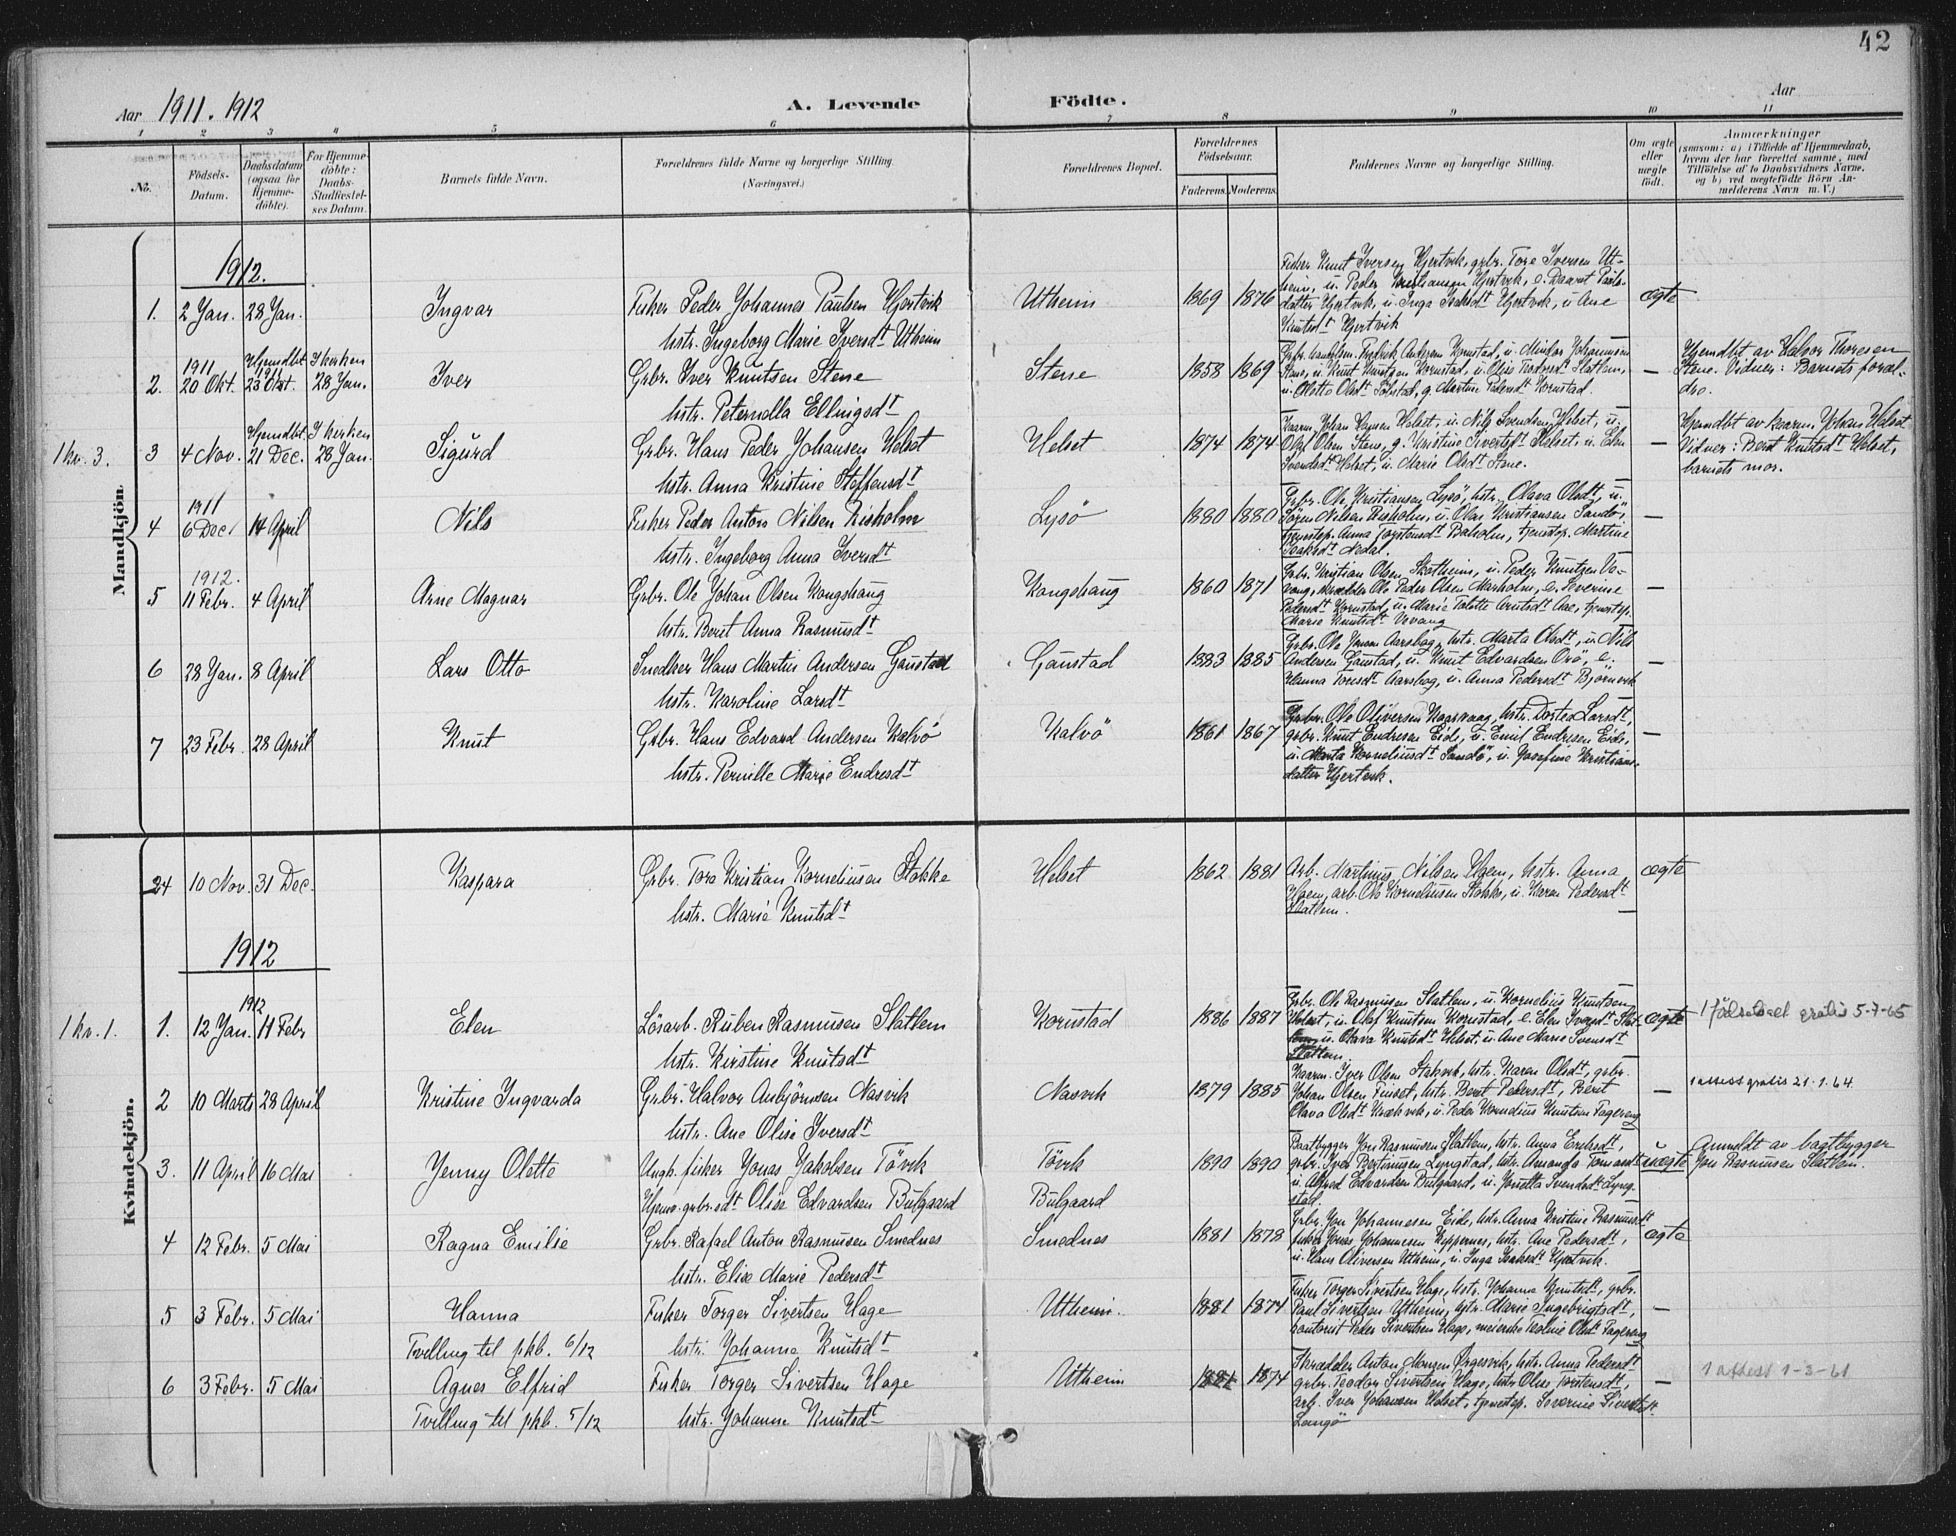 42
Aar 1911. 1912
A. Levende Födte.
Aar
1 2 3 4 5 6 7 8 9 10 11
No.
Födsels-
Datum.
Daabsdatum
(ogsaa for
Hjemme-
döbte).
For Hjemme-
döbte:
Daabs-
Stadfæstel-
ses Datum.
Barnets fulde Navn.
Forældrenes fulde Navne og borgerlige Stilling.
(Næringsvei.)
Forældrenes Bopæl.
Forældrenes
Födselsaar.
Faderens. Moderens.
Faddernes Navne og borgerlige Stilling.
Om ægte
eller
uægte
födt.
Anmærkninger
(saasom: a) i Tilfælde af Hjemmedaab,
hvem der har forrettet samme, med
Tilföielse af to Daabsvidners Navne,
og b) ved uægtefödte Börn An-
melderens Navn m. V.)
Mandkjön.
1912.
1. 2 Jan. 28 Jan. Ingvar
Fisker Peder Johannes Paulsen Hjertvik
hstr. Ingeborg Marie Iversdt Utheim
Utheim 1869 1876
Fisker Knut Iversen Hjertvik, grbr. Tore Iversen Ut-
heim, u. Peder Kristiansen Hjertvik, e. Beret Pauls-
datter Hjertvik, u. Inga Isaksdt Hjertvik, u. Ane
Knutsdt Hjertvik
ægte
2. 1911 20 Okt. Hjemdbt. 1911 23 Okt. I kirken 28 Jan. Iver
Grbr. Iver Knutsen Stene
hstr. Peternella Ellingsdt
Stene 1858 1869
Grbr. handelsm. Fredrik Andersen Kornstad, u. Johannesen
Stene, u. Knut Knutsen Kornstad, u. Olise Slatlem,
u. Olette Olsdt g. Martine Pedersdt Kornstad.
—
Hjemdbt av Halvor Thoresen
Stene. Vidner: Barnets foræl-
dre.
1 kv. 3.
3 4 Nov. Hjemdbt. 21 Dec. I kirken 28 Jan. Sigurd
Grbr. Hans Peder Johansen Helset
hstr. Anna Kristine Steffensdt
Helset 1874 1874
Kaarm. Johan Hansen Helset, u. Nils Svendsen Helset, u.
Olaf Olsen Stene, g. Kristine Sivertsdt Helset, u. Elen
Svendsdt Helset, u. Marie Olsdt Stene.
—
Hjemdbt av kaarm. Johan Helset
Vidner: Berit Knutsdt Helset,
barnets mor.
4 1911 6 Dec. 14 April Nils
Fisker Peder Anton Nilsen Risholm
hstr. Ingeborg Anna Iversdt
Lysö 1880 1880
Grbr. Ole Kristiansen Lysö, hstr. Olava Olsdt, u.
Sören Nilsen Risholm, u. Olav Kristiansen Sandö,
tjenstep. Anna Torstensdt Baholm, tjenstep. Martine
Isaksdt Nedal.
—
5 1912. 11 Febr. 4 April Arne Magnar
Grbr. Ole Johan Olsen Kongshaug
hstr. Beret Anna Rasmusdt
Kongshaug 1860 1871
Grbr. Kristian Olsen Skatheim, u. Peder Knutsen Ve-
vang, skrædder Ole Peder Olsen Marholm, e. Severine
Pedersdt Kornstad, u. Marie Aae, tjenstep.
Marie Knutsdt Vevang
—
6 28 Jan. 8 April Lars Otto
Snedker Hans Martin Andersen Gaustad
hstr. Karoline Larsdt
Gaustad 1883 1885
Grbr. Ole Jensen Aarsbog, hstr. Marta Olsdt, u. Nils
Andersen Gaustad, u. Knut Edvardsen Orö, e.
Hanna Aarsbog, u. Anna Pedersdt Björnvik
—
7 23 Febr. 28 April Knut
Grbr. Hans Edvard Andersen Kalvö
hstr. Pernille Marie Endresdt
Kalvö 1861 1867
Grbr. Ole Oliversen Kaarvaag, hstr. Dortea Larsdt,
grbr. Knut Endresen Eide, u. Emil Endresen Eide,
u. Marta Korneliusdt Sandö, u. Josefine Kristians-
datter Hjertvik.
—
Kvindekjön.
24 10 Nov. 31 Dec. Kaspara
Grbr. Tore Kristian Korneliusen Stokke
hstr. Marie Knutsdt
Helset 1862 1881
Arb. Martinus Nilsen Ugen, hstr. Anna
Ugen, arb. Ole Korneliusen Stokke, u. Karen Pedersdt
Slatlem.
ægte
1912
1 kv. 1.
1. 12 Jan. 1912 11 Febr. Elen
Lösarb. Ruben Rasmusen Slatlem
hstr. Kirstine Knutsdt
Kornstad 1886 1887
Grbr. Ole Rasmusen Slatlem, u. Kornelius Knutsen
Helset, u. Olaf Knutsen Kornstad, e. Elen Iversdt Slat-
lem, u. Olava Knutsdt Helset, u. Ane Marie Svensdt
Slatlem
ægte
1 födselsatt gratis 5-7-65
2 10 Marts 28 April Kristine Ingvarda
Grbr. Halvor Anbjörnsen Nasvik
hstr. Ane Olise Iversdt
Nasvik 1879 1885
Kaarm. Iver Olsen Stokvik, hstr. Karen Olsdt, grbr.
Johan Olsen Finset, hstr. Beret Pedersdt, Beret
Olava Olsdt Krækvik, u. Peder Kornelius Knutsen Fagereng
—
1 attest gratis 21.1.64
3. 11 April 16 Mai Jenny Olette
Ungk. fisker Jonas Jakobsen Tövik
Hjemv. grbr.sdt Olise Edvardsen Bulgaard
Tövik
Bulgaard
1890 1890
Baatbygger Jon Rasmusen Slatlem, hstr. Anna Eriksdt,
grbr. Iver Bertinusen Lyngstad, hstr. Amanda
u. Alfred Edvardsen Bulgaard, u. Josetta Svendsdt Lyng-
stad
uægte
Anmeldt av baatbygger
Jon Rasmusen Slatlem.
4 12 Febr. 5 Mai Ragna Emilie
Grbr. Rafael Anton Rasmusen Smednes
hstr. Elise Marie Pedersdt
Smednes 1881 1878
Grbr. Jon Johannesen Eide, hstr. Anna Kristine Rasmusdt
fisker Jonas Johannesen Keppernes, hstr. Ane Pedersdt,
u. Hans Oliversen Utheim, u. Inga Isaksdt Hjertvik.
ægte
5 3 Febr. 5 Mai Hanna
Tvilling til pkb. 6/12
Fisker Torger Sivertsen Hage
hstr. Johanna Knutsdt
Utheim. 1881 1874
Fisker Torger Sivertsen Hage, hstr. Johanna Knutsdt, grbr.
Paul Sivertsen Utheim, hstr. Marie Ingebrigtsdt,
kontorist Peder Sivertsen Hage, meierske Oline Olsdt Fagereng
—
6 3 Febr. 5 Mai Agnes Elfrid
Tvilling til pkb. 5/12
Fisker Torger Sivertsen Hage
hstr. Johanne Knutsdt
Utheim 1881 1874
Skrædder Anton Monsen Ørgesvik, hstr. Anna Pedersdt
grbr. Teodor Sivertsen Hage, hstr. Olise Torstensdt,
arb. Iver Johansen Helset, tjenstep. Severine Sivertsdt
Langö
—
1 attest 1-3-61